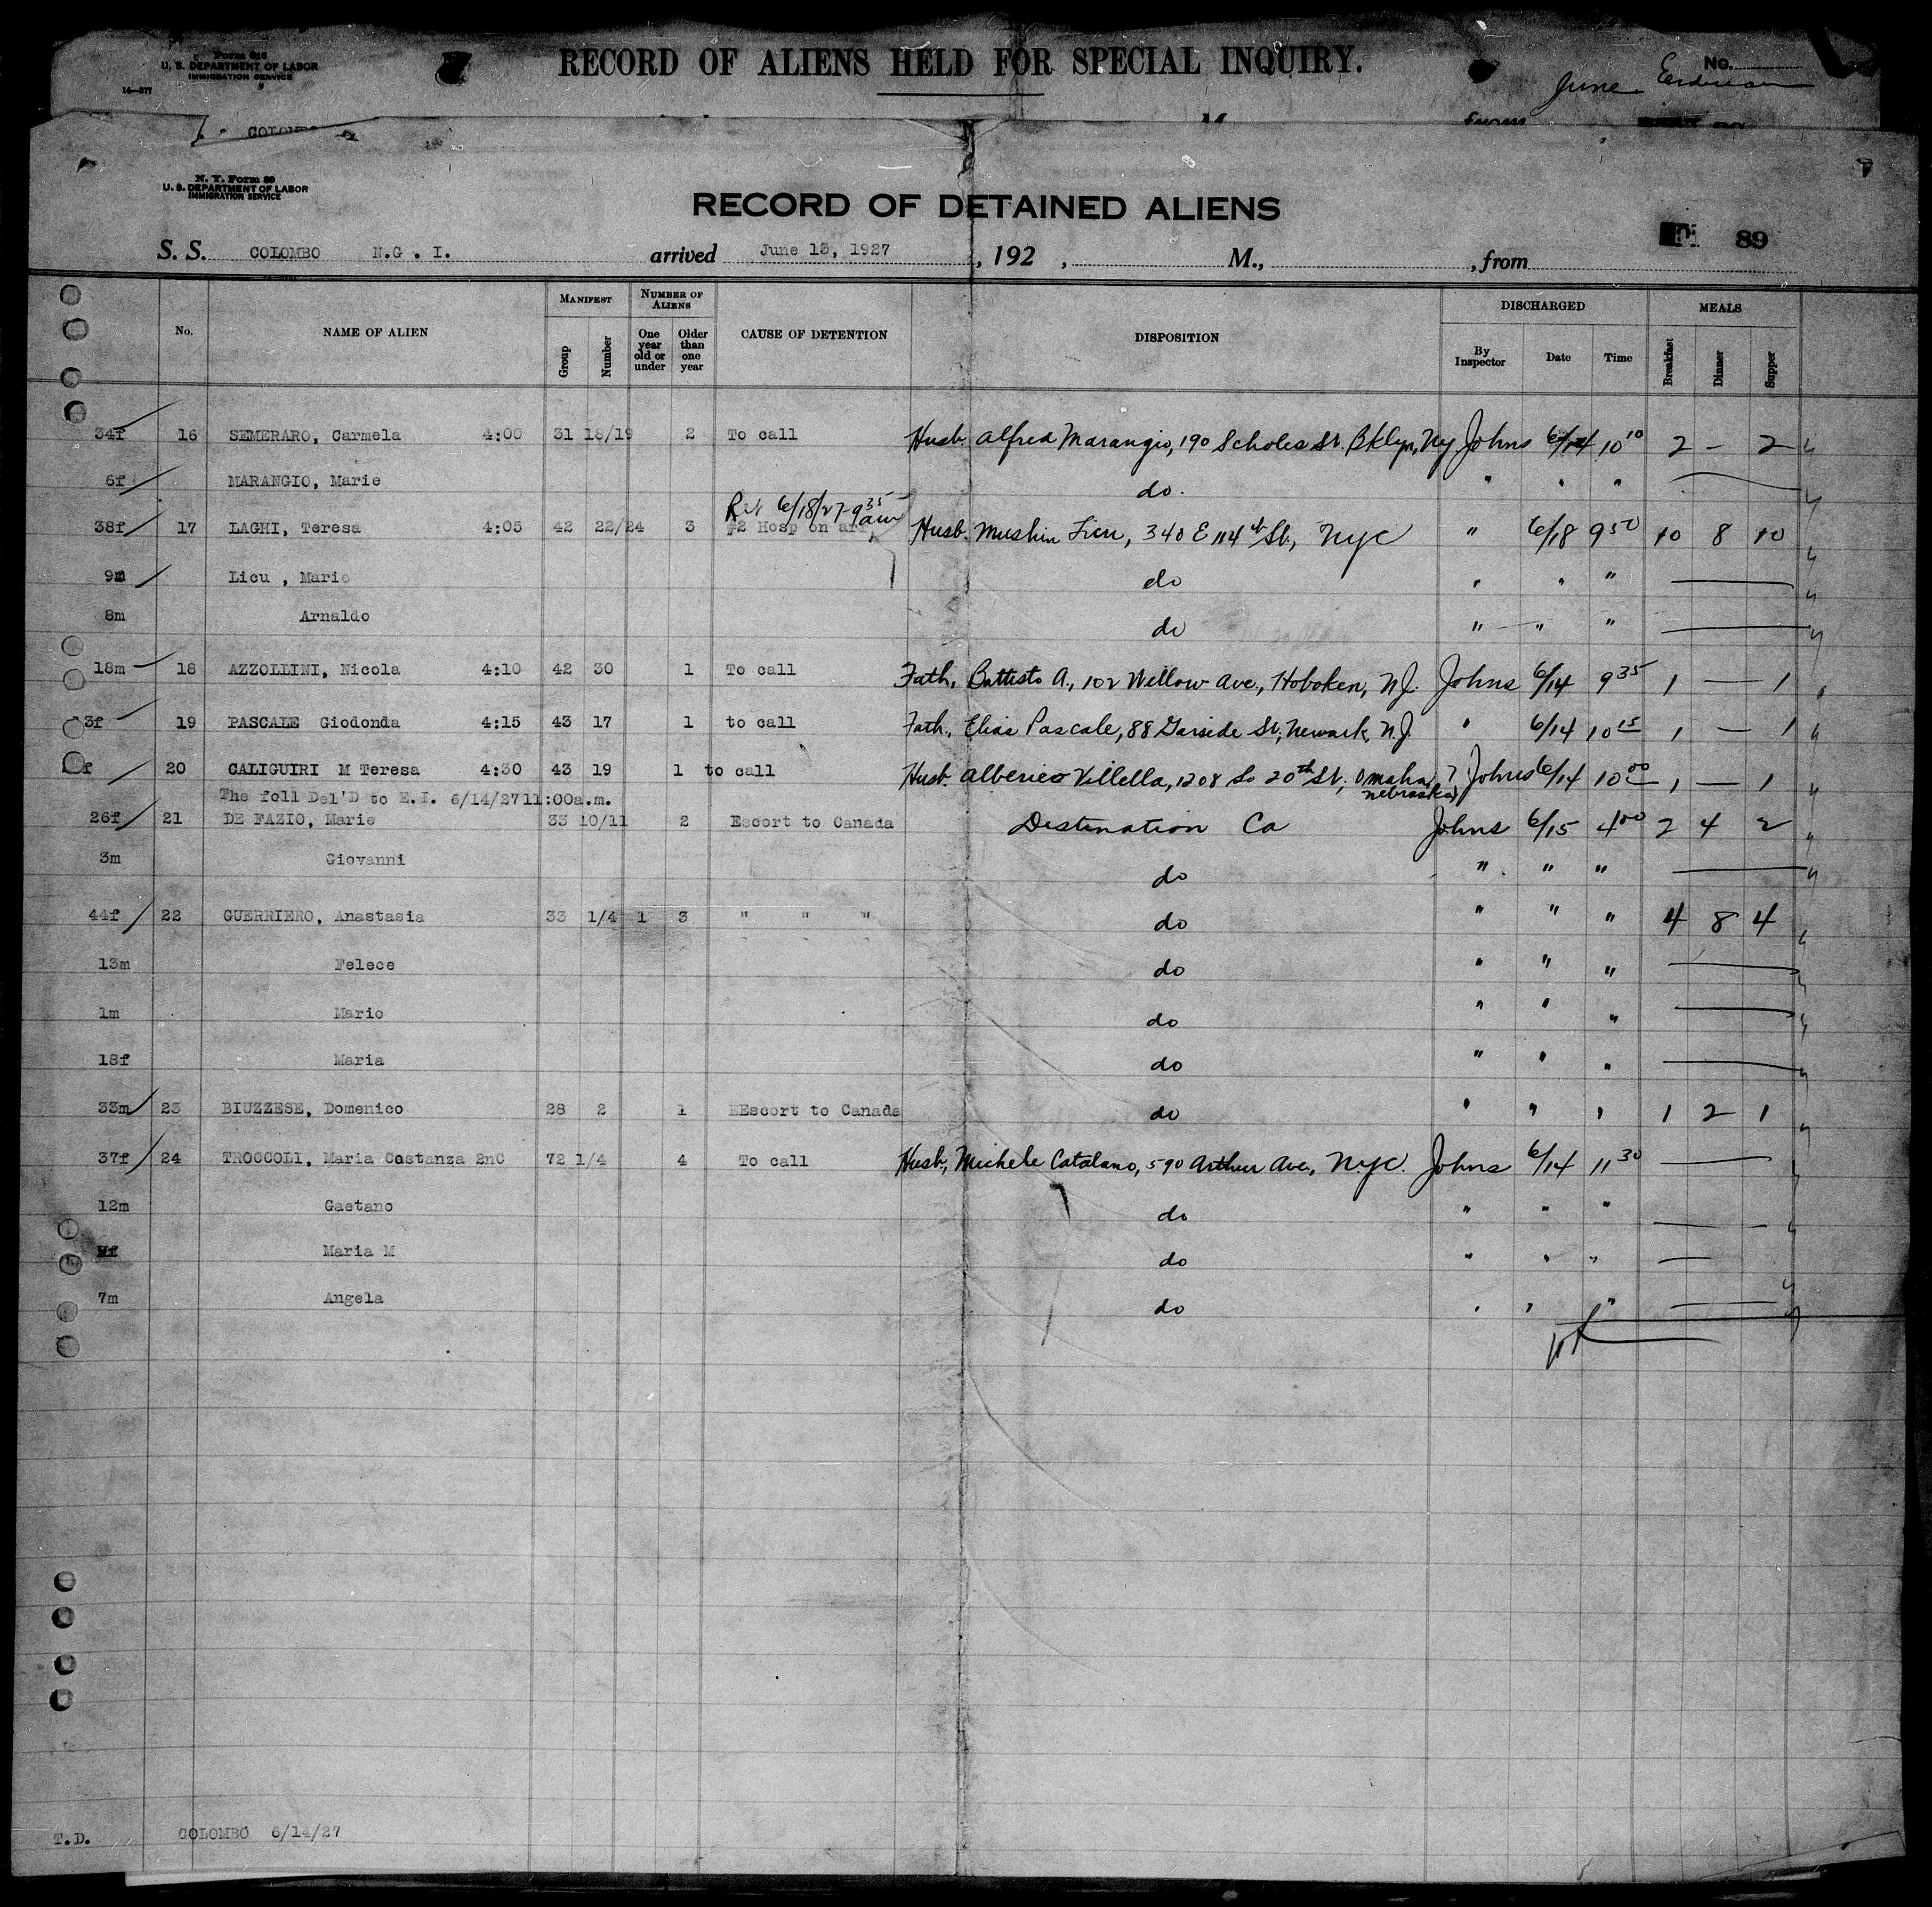 Form 616
U. S. DEPARTMENT OF LABOR
IMMIGRATION SERVICE
14—377
RECORD OF ALIENS HELD FOR SPECIAL INQUIRY.
No.
June
COLOMBO
from
N. Y. Form 89
U. S. DEPARTMENT OF LABOR
IMMIGRATION SERVICE
RECORD OF DETAINED ALIENS
89
S. S. COLOMBO N.G . I. arrived June 13, 1927 , 192 , M., , from
No. NAME OF ALIEN MANIFEST Group Number NUMBER OF ALIENS One year old or under Older than one year CAUSE OF DETENTION DISPOSITION DISCHARGED By Inspector Date Time MEALS Breakfast Dinner Supper
34f 16 SEMERARO, Carmela 4:00 31 18/19 2 To call Husb. Alfred Marangio, 190 Scholes St. Bklyn, Ny Johns 6/14 10 10 2 – 2
6f MARANGIO, Marie do. " " "
Ret 6/18/27-9 35 am
38f 17 LAGHI, Teresa 4:05 42 22/24 3 #2 Hosp on arr Husb. 340 E 114th St., NYC " 6/18 9 50 10 8 10
9m Licu , Mario do " " "
8m Arnaldo do " " "
18m 18 AZZOLLINI, Nicola 4:10 42 30 1 To call Fath. Battisto A., 102 Willow Ave., Hoboken, NJ. Johns 6/14 9 35 1 — 1
3f 19 PASCALE Giodonda 4:15 43 17 1 to call Fath., Elias Pascale, 88 Garside St., Newark, N.J. " 6/14 10 15 1 — 1
f 20 CALIGUIRI M Teresa 4:30 43 19 1 to call Husb. Alberico Villella, 1208 So 20th St., Omaha, Nebraska Johns 6/14 10 00 1 — 1
The foll Del'D to E.I. 6/14/27 11:00a.m.
26f 21 DE FAZIO, Marie 33 10/11 2 Escort to Canada Destination Ca Johns 6/15 4 00 2 4 2
3m Giovanni do " " "
44f 22 GUERRIERO, Anastasia 33 1/4 1 3 " " " do " " " 4 8 4
13m Felece do " " "
1m Mario do " " "
18f Maria do " " "
33m 23 BIUZZESE, Domenico 28 2 1 EEscort to Canada do " " " 1 2 1
37f 24 TROCCOLI, Maria Costanza 2nC 72 1/4 4 To call Husb, Michele Catalano, 590 Arthur Ave, N.Y.C. Johns 6/14 11 30
12m Gaetano do " " "
Maria M do " " "
7m Angela do " " "
T.D. COLOMBO 6/14/27